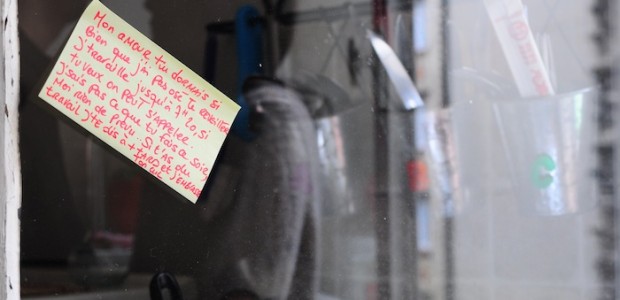 MON AMOUR TU DORMAIS SI
Bien QUE j'AI PAS OSE TE REVEILLER
j'TRAVAILLE JUSQU'À 7H20, SI
TU VEUX ON PEUT S'APPELER.
j'SAIS PAS CE QUE TU FAIS CE SOIR,
MOI RIEN DE PRÉVU. SI T'AS DU
TRAVAIL j'TE DIS À + TARD ET j'EMBRASSE